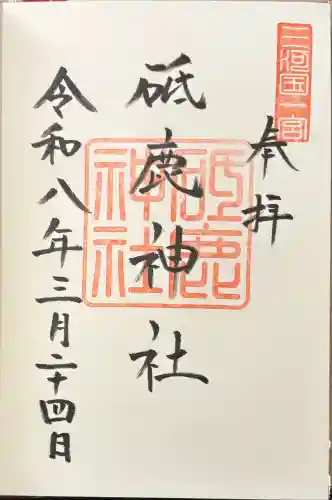 三河国一宮
奉拝
砥鹿神社
砥鹿神社
令和八年三月二十四日